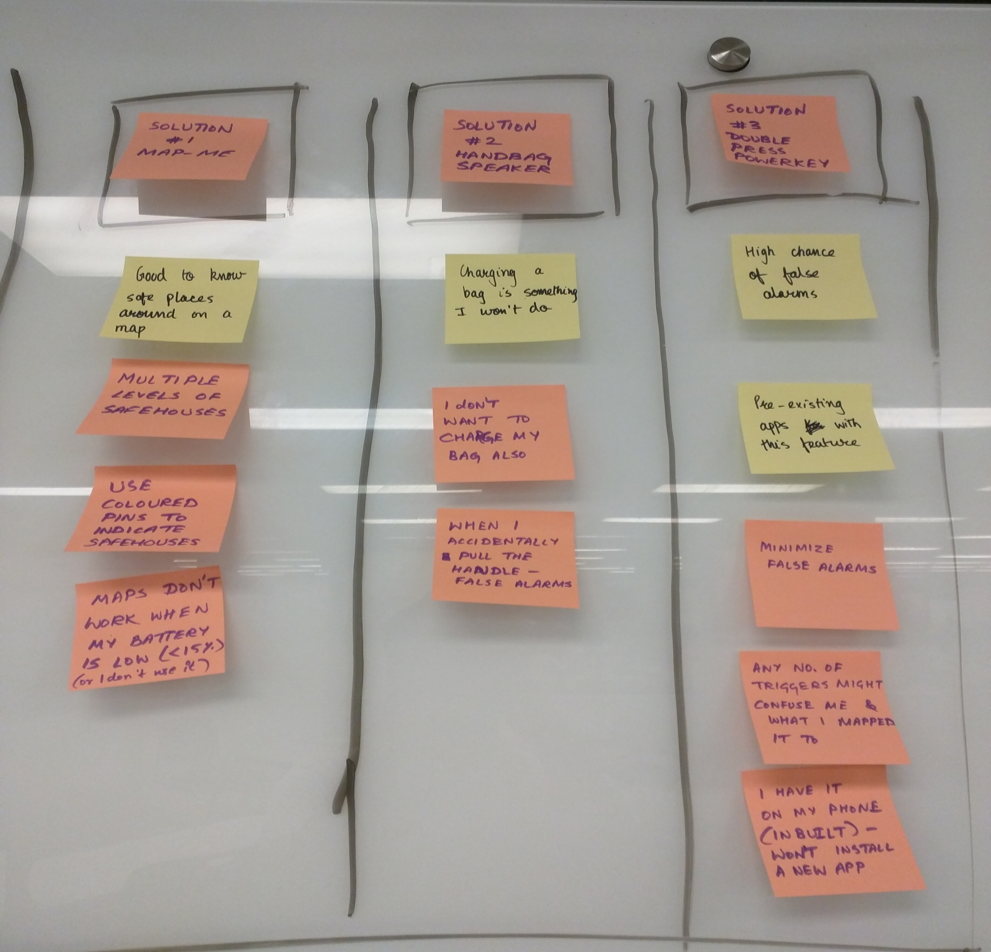 SOLUTION
#1
MAP-ME
Good to know
safe places
around on a
map
MULTIPLE
LEVELS OF
SAFEHOUSES
USE
COLOURED
PINS TO
INDICATE
SAFEHOUSES
MAPS DON'T
WORK WHEN
MY BATTERY
IS LOW (<15%)
(or I don't use it)
SOLUTION
#2
HANDBAG
SPEAKER
Charging a
bag is something
I won't do
I DON'T
WANT TO
CHARGE MY
BAG ALSO
WHEN I
ACCIDENTALLY
PULL THE
HANDLE -
FALSE ALARMS
SOLUTION
#3
DOUBLE
PRESS
POWERKEY
High chance
of false
alarms
Pre-existing
apps with
this feature
MINIMIZE
FALSE ALARMS
ANY NO. OF
TRIGGERS MIGHT
CONFUSE ME &
WHAT I MAPPED
IT TO
I HAVE IT
ON MY PHONE
(INBUILT) -
WON'T INSTALL
A NEW APP